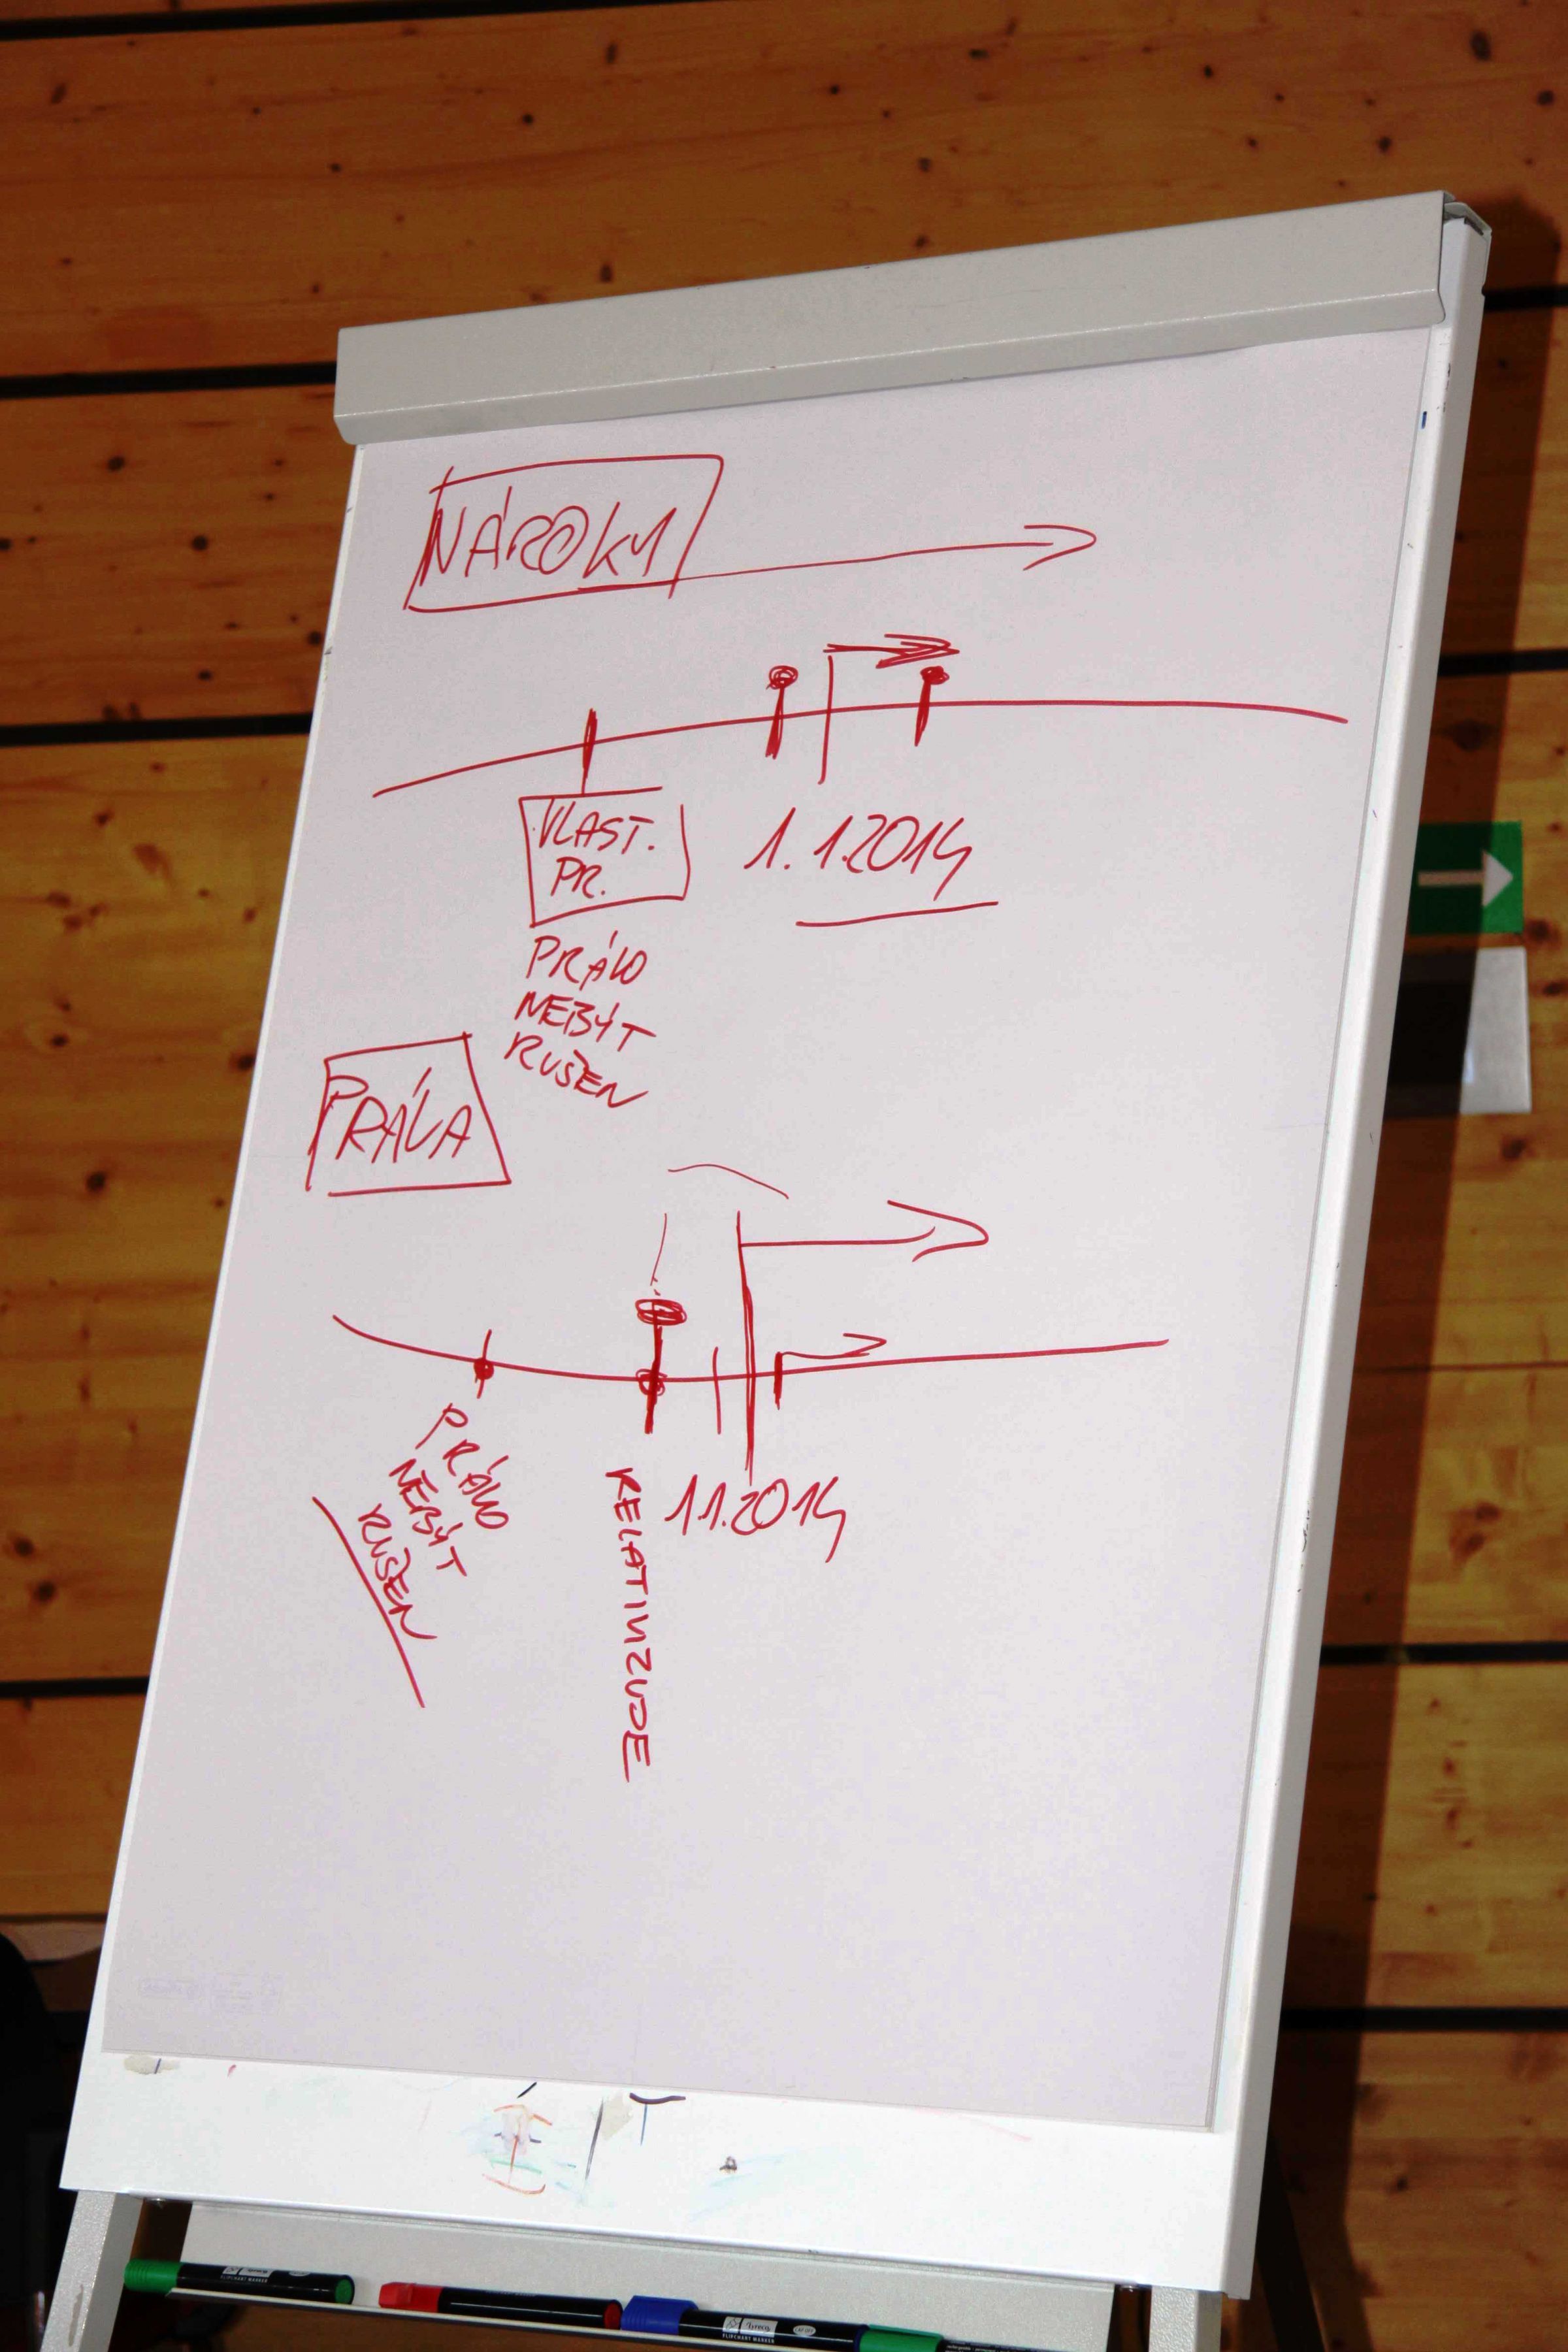 NÁROKY
VLAST.
PR.
1.1.2014
PRÁVO
NEBÝT
RUŠEN
PRÁVA
PRÁVO
NEBÝT
RUŠEN
1.1.2014
FLIPCHART MARKER
FLIPCHART MARKER